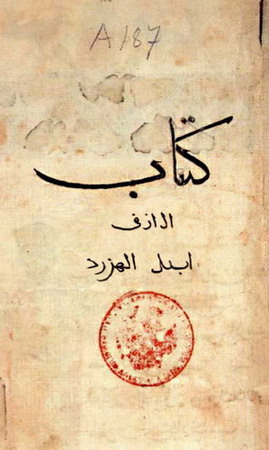 A187
كتاب
ال ازف
ابدل الهزرد